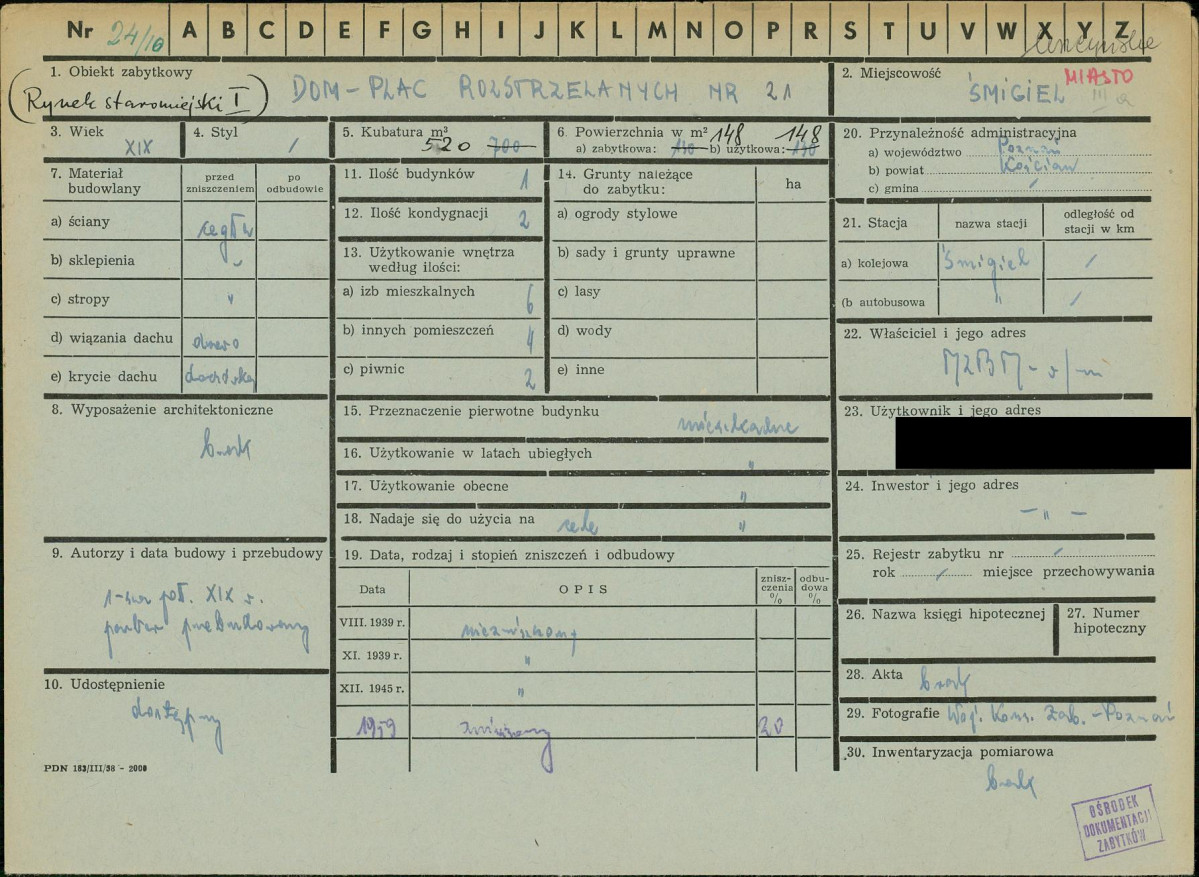 Nr 24/10 A B C D E F G H I J K L M N O P R S T U V W X Y Z
1. Obiekt zabytkowy
(Rynek staromiejski I)
DOM - PLAC ROZSTRZELANYCH NR 21
2. Miejscowość
MIASTO
ŚMIGIEL
III a
3. Wiek
XIX
4. Styl
/
5. Kubatura m³
520 700
6. Powierzchnia w m² 148 148
a) zabytkowa: b) użytkowa:
7. Materiał budowlany
przed zniszczeniem
po odbudowie
a) ściany
cegła
b) sklepienia
c) stropy
"
d) wiązania dachu
drewno
e) krycie dachu
dachówka
8. Wyposażenie architektoniczne
brak
9. Autorzy i data budowy i przebudowy
1-sza poł. XIX w.
parter przebudowany
10. Udostępnienie
dostępny
PDN 183/III/58 - 2000
11. Ilość budynków
1
12. Ilość kondygnacji
2
13. Użytkowanie wnętrza według ilości:
a) izb mieszkalnych
6
b) innych pomieszczeń
4
c) piwnic
2
14. Grunty należące do zabytku:
ha
a) ogrody stylowe
b) sady i grunty uprawne
c) lasy
d) wody
e) inne
15. Przeznaczenie pierwotne budynku
mieszkalne
16. Użytkowanie w latach ubiegłych
"
17. Użytkowanie obecne
"
18. Nadaje się do użycia na cele "
19. Data, rodzaj i stopień zniszczeń i odbudowy
Data
OPIS
zniszczenia %
odbudowa %
VIII. 1939 r.
niezniszczony
XI. 1939 r.
"
XII. 1945 r.
"
1959
zniszczony
20
20. Przynależność administracyjna
a) województwo Poznań
b) powiat Kościan
c) gmina /
21. Stacja
nazwa stacji
odległość od stacji w km
a) kolejowa
Śmigiel
/
(b autobusowa
"
/
22. Właściciel i jego adres
MZBM - w/m
23. Użytkownik i jego adres
24. Inwestor i jego adres
- " -
25. Rejestr zabytku nr /
rok / miejsce przechowywania
26. Nazwa księgi hipotecznej
27. Numer hipoteczny
28. Akta
brak
29. Fotografie Woj. Kons. Zab. - Poznań
30. Inwentaryzacja pomiarowa
brak
OŚRODEK
DOKUMENTACJI
ZABYTKÓW